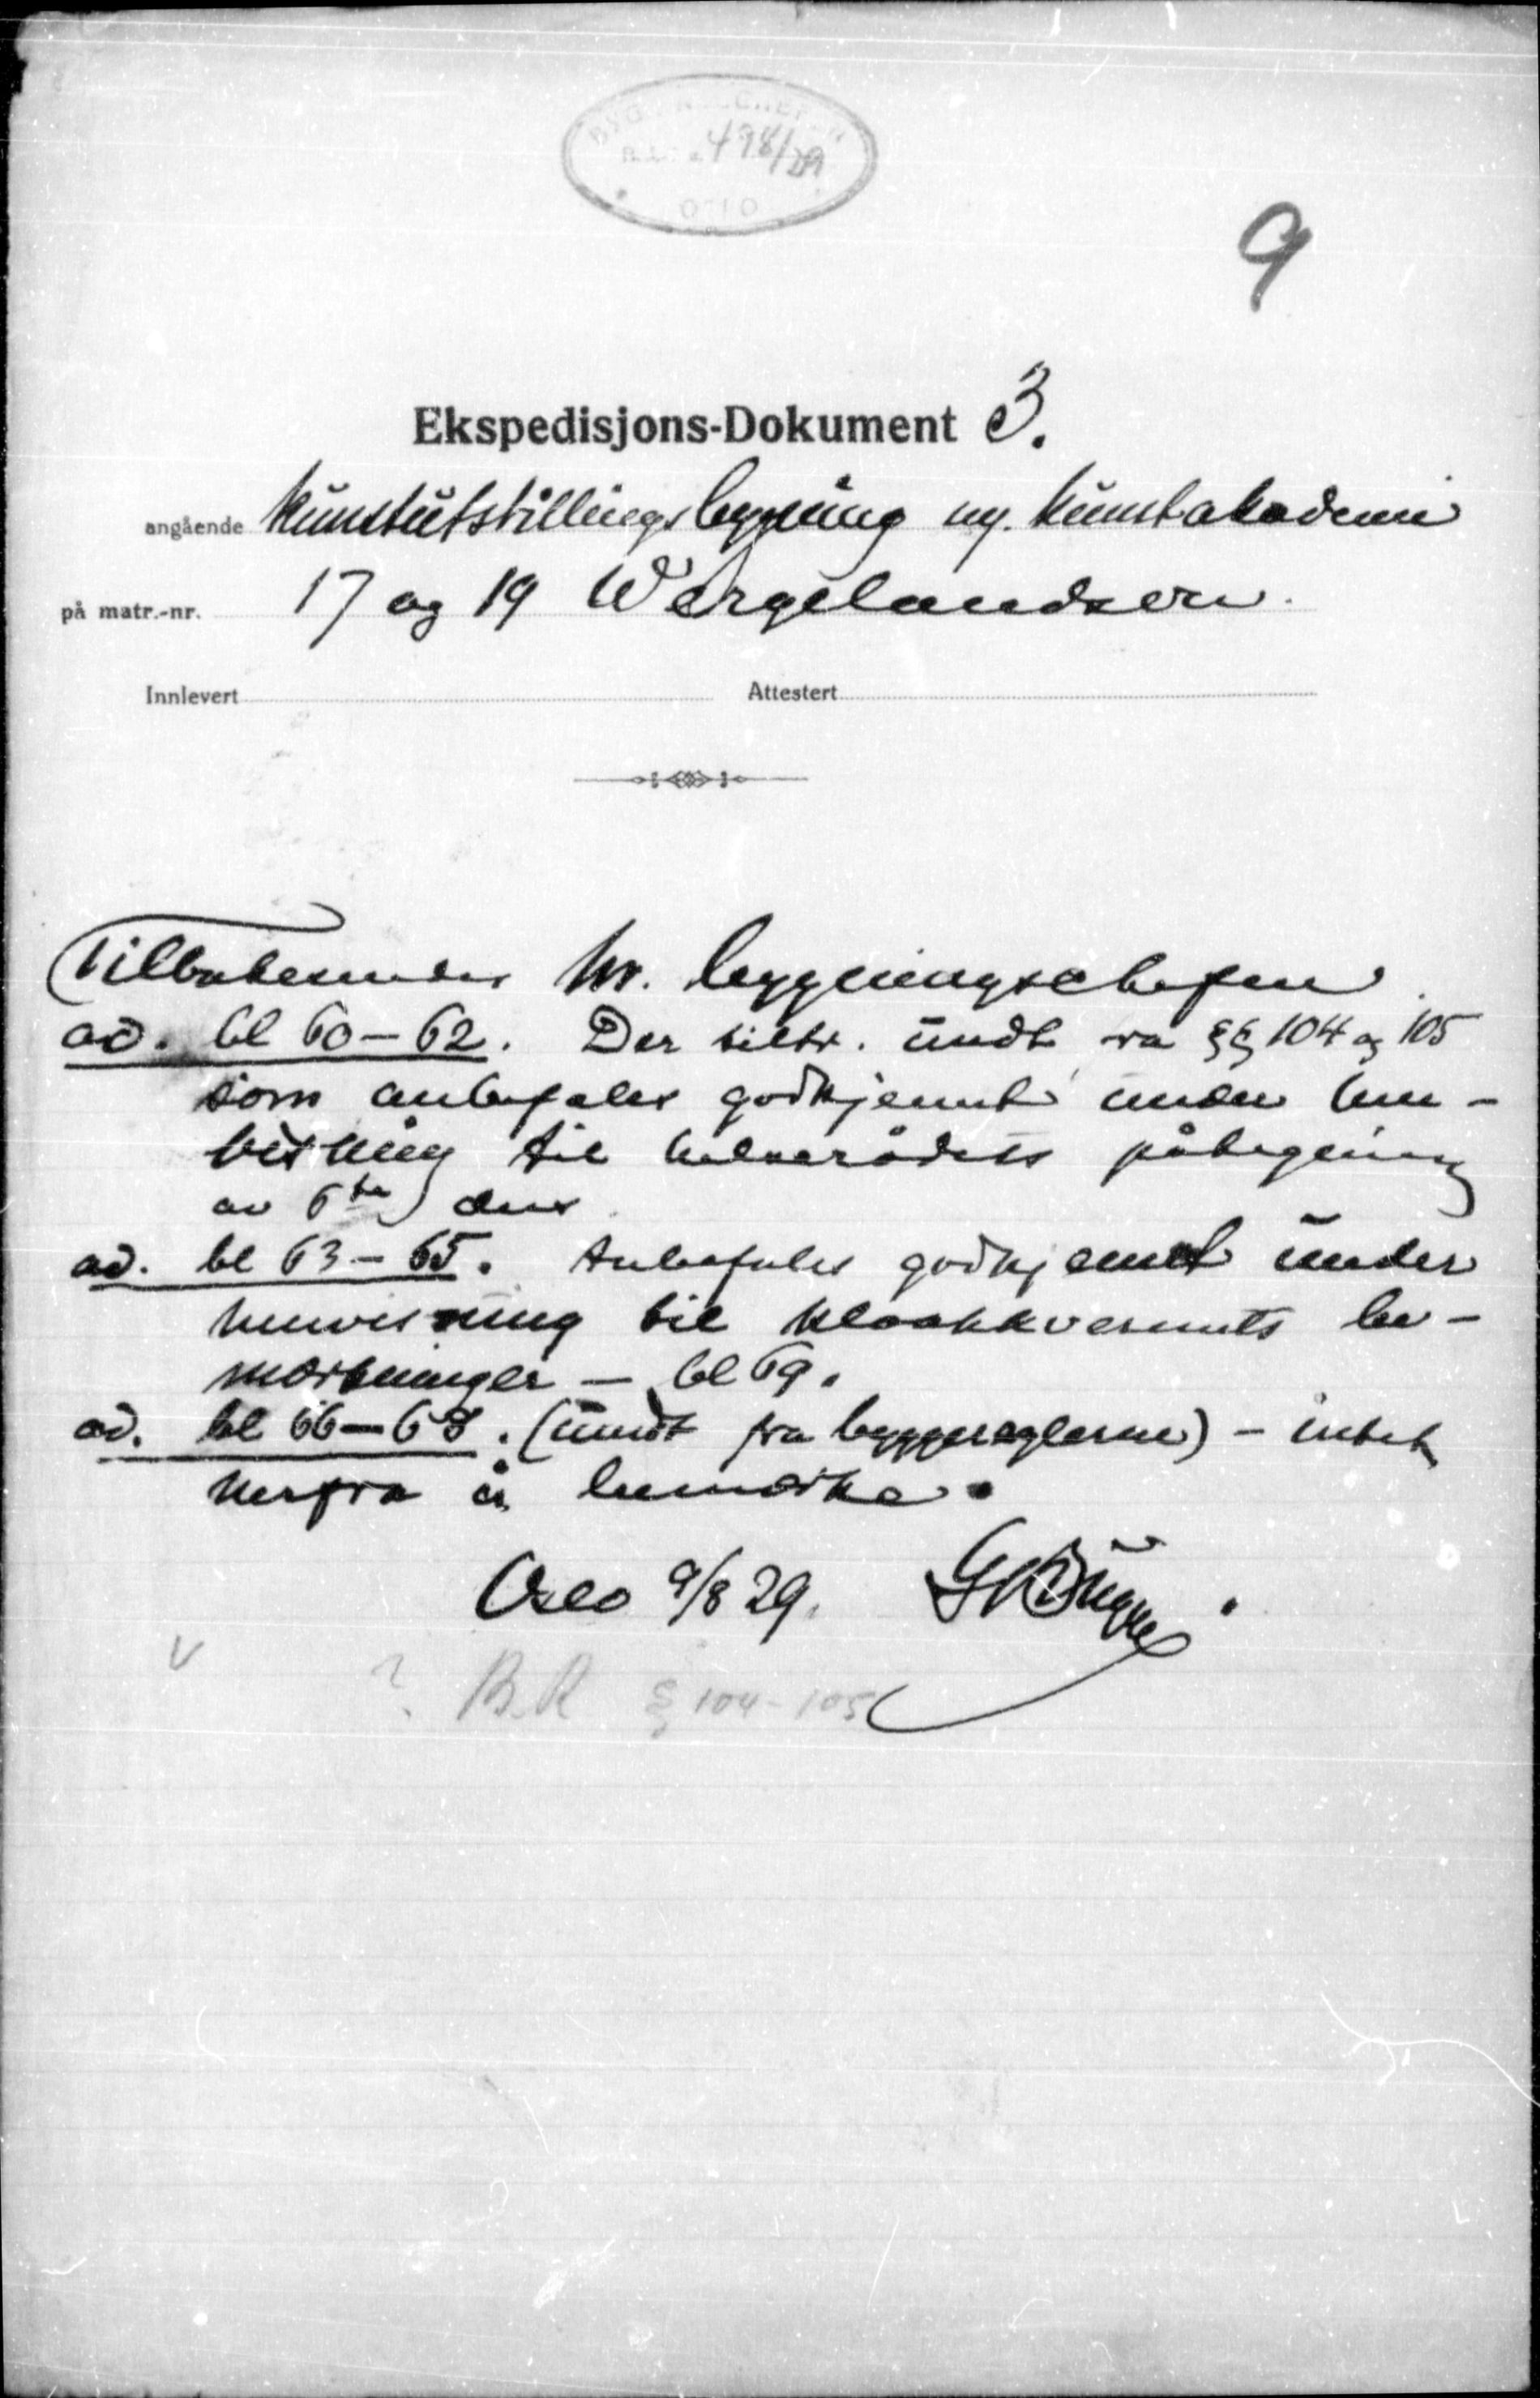 498/29
9
Ekspedisjons-Dokument 3.
angående Kunstutstillingsbygning og. Kunstakademi
på matr.-nr. 17 og 19 Wergelandsvn.
Innlevert Attestert
Tilbakesendes hr. bygningschefen.
ad. bl 60-62. Der tiltr. undt fra §§ 104 og 105
som anbefales godkjennt under hen-
visning til helserådets påtegning
av 6te ds
ad. bl 63-65. Anbefales godkjennt under
henvisning til kloakkvesenets be-
mærkninger - bl 69.
ad. bl 66-68. (undt fra byggereglerne) - intet
herfra å bemærke.
Oslo 9/8 29.
? B.R § 104-105